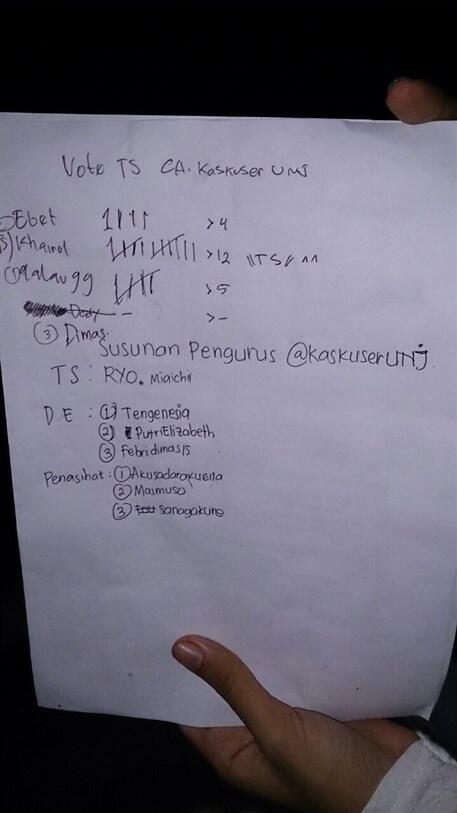 Vote TS CA. Kaskuser UNJ
Ebet >4
Khairol >12 "TS" ^^
galau gg >5
Dody - >-
③ Dimas.
Susunan Pengurus @kaskuserUNJ
TS : RYO. Miaichi
D.E : ① Tengenesia
② PutriElizabeth
③ Febridimas15
Penasihat : ①
② Maimuso
③ Sanagakure